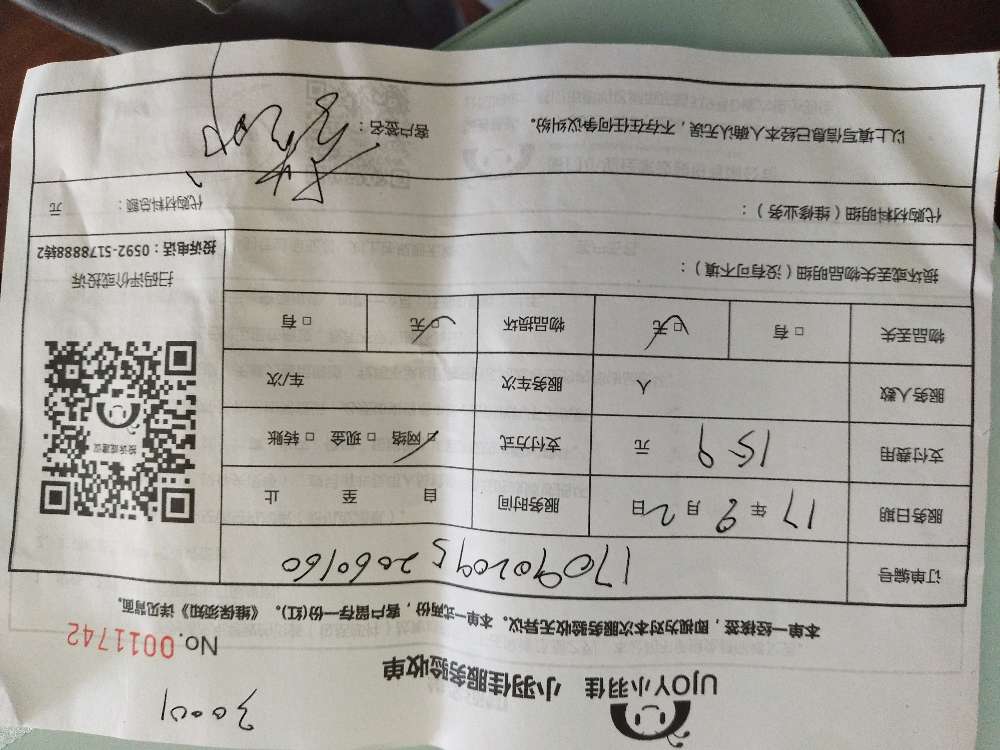 30001
UJOY小羽佳 小羽佳服务验收单
No.0011742
本单一经接签，即视为对本次服务验收无异议。本单一式两份，客户留存一份(红)。《维保须知》详见背面。
订单编号 1709020952060160
服务日期 17年9月2日 服务时间 自 至 止
支付费用 159 元 支付方式 □网络 □现金 □转账
服务人数 人 服务车次 车/次
物品丢失 □有 □无 物品损坏 □无 □有
投诉或建议
扫码评价或投诉
投诉电话：0592-5178888转2
损坏或丢失物品明细（没有可不填）：
代购材料明细（维修业务）： 代购材料总额： 元
以上填写信息已经本人确认无误，不存在任何争议纠纷。 客户签名：